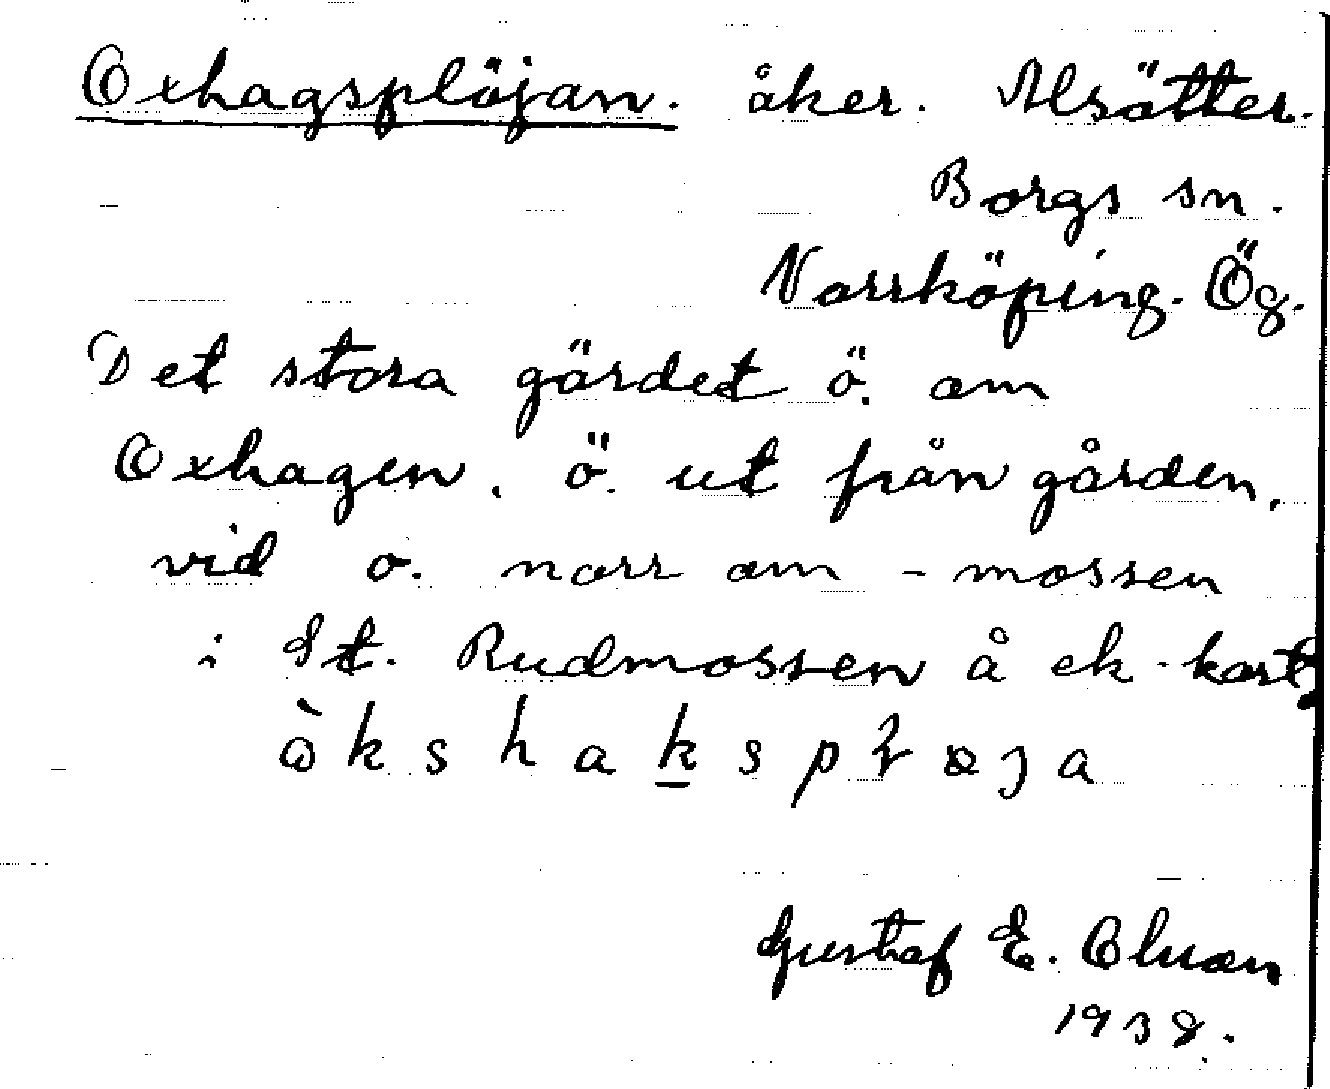 Oxhagsplöjan. åker. Alsätter.
Borgs sn.
Norrköping. Ög.
Det stora gärdet ö. om
Oxhagen. ö. ut från gården,
vid o. norr om - mossen
i St. Rudmossen å ek. kart
Gustaf E. Oluson
1938.